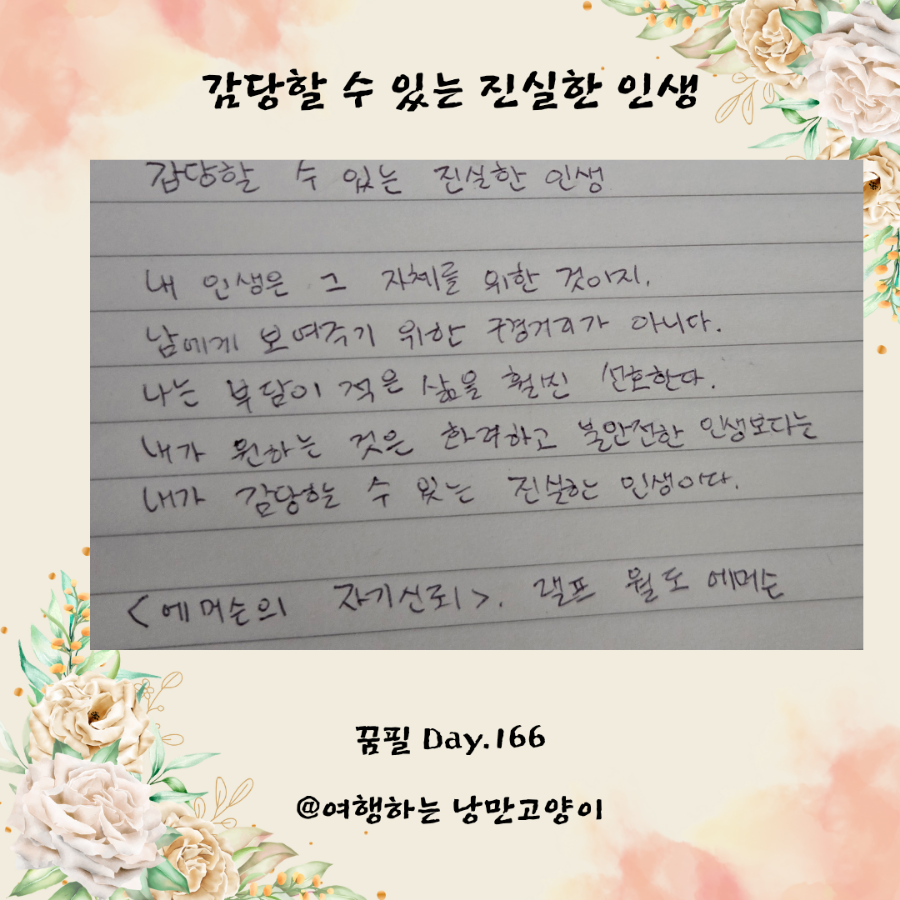 감당할 수 있는 진실한 인생
감당할 수 있는 진실한 인생
내 인생은 그 자체를 위한 것이지,
남에게 보여주기 위한 구경거리가 아니다.
나는 부담이 적은 삶을 훨씬 선호한다.
내가 원하는 것은 화려하고 불안전한 인생보다는
내가 감당할 수 있는 진실한 인생이다.
<에머슨의 자기신뢰>. 랠프 월도 에머슨
꿈필 Day.166
@여행하는 낭만고양이